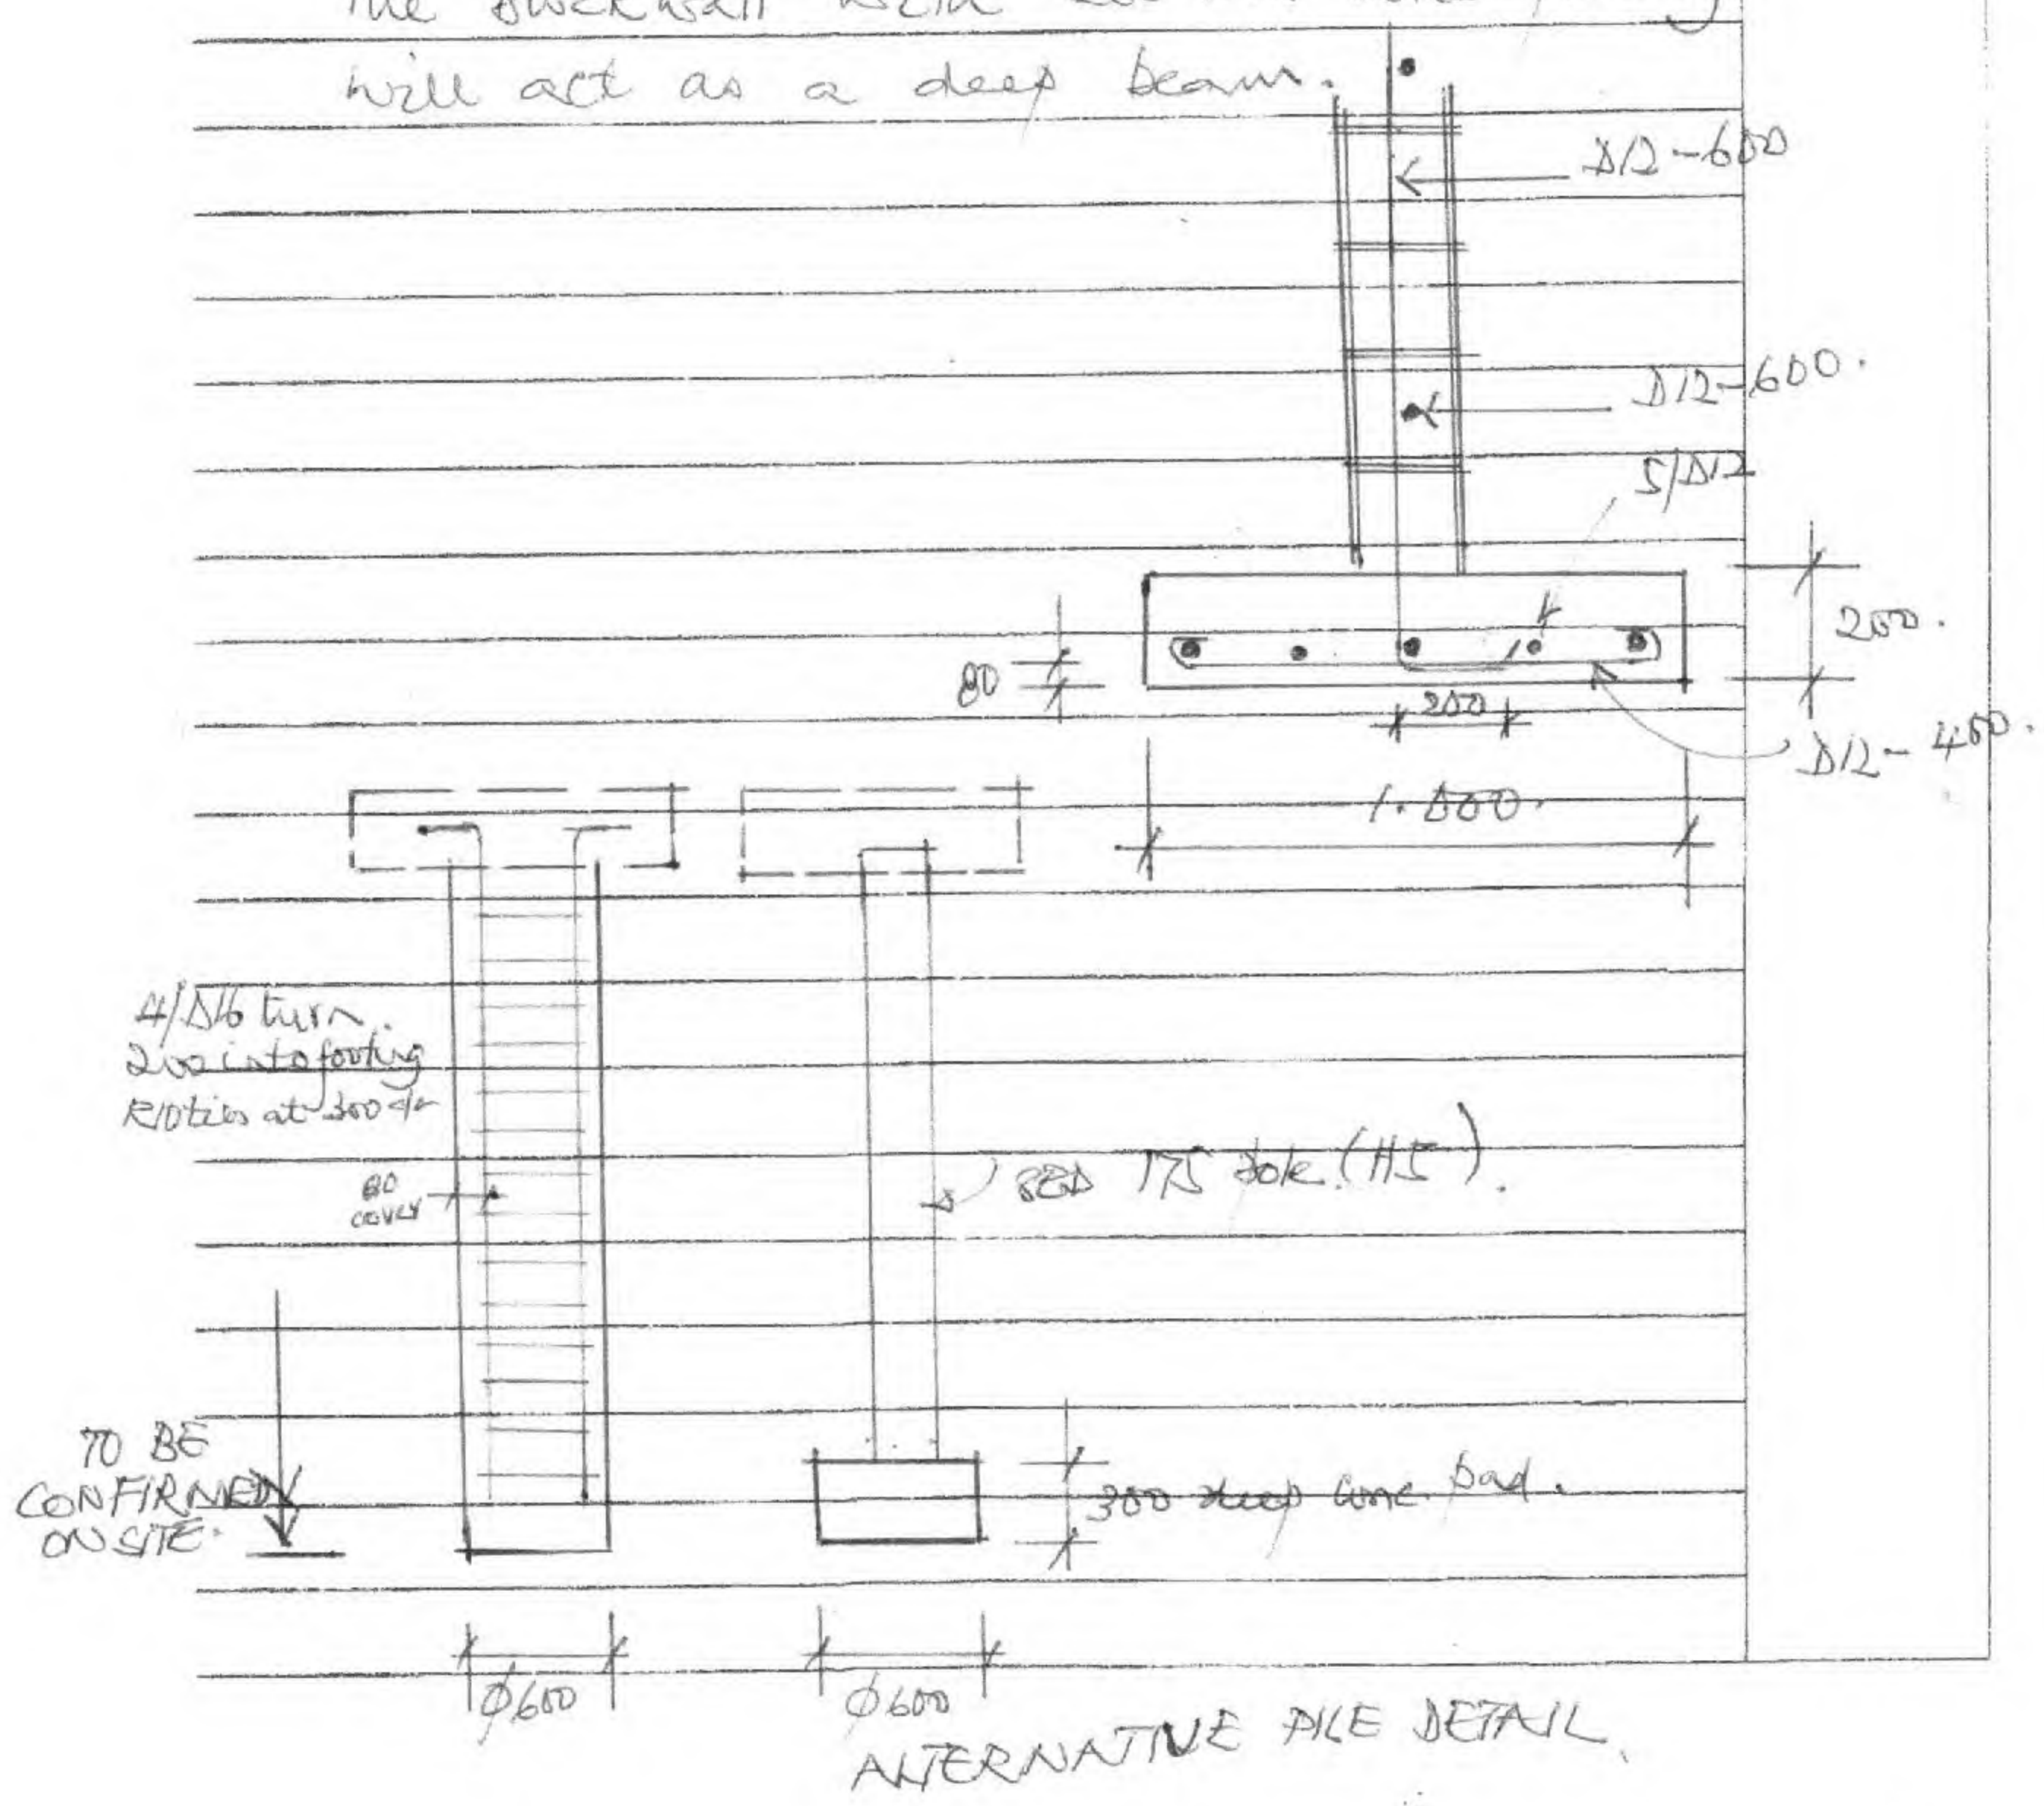 The blockwall with
will act as a deep beam.
D12-600
D12-600.
5/D12
200.
80
200
D12-400.
4/D16 turn.
200 into footing
R10 ties at 300 c/c
80
cover
SED 175 Pole. (H5).
TO BE
CONFIRMED
ON SITE.
300 deep conc. pad.
φ600
φ600
ALTERNATIVE PILE DETAIL.